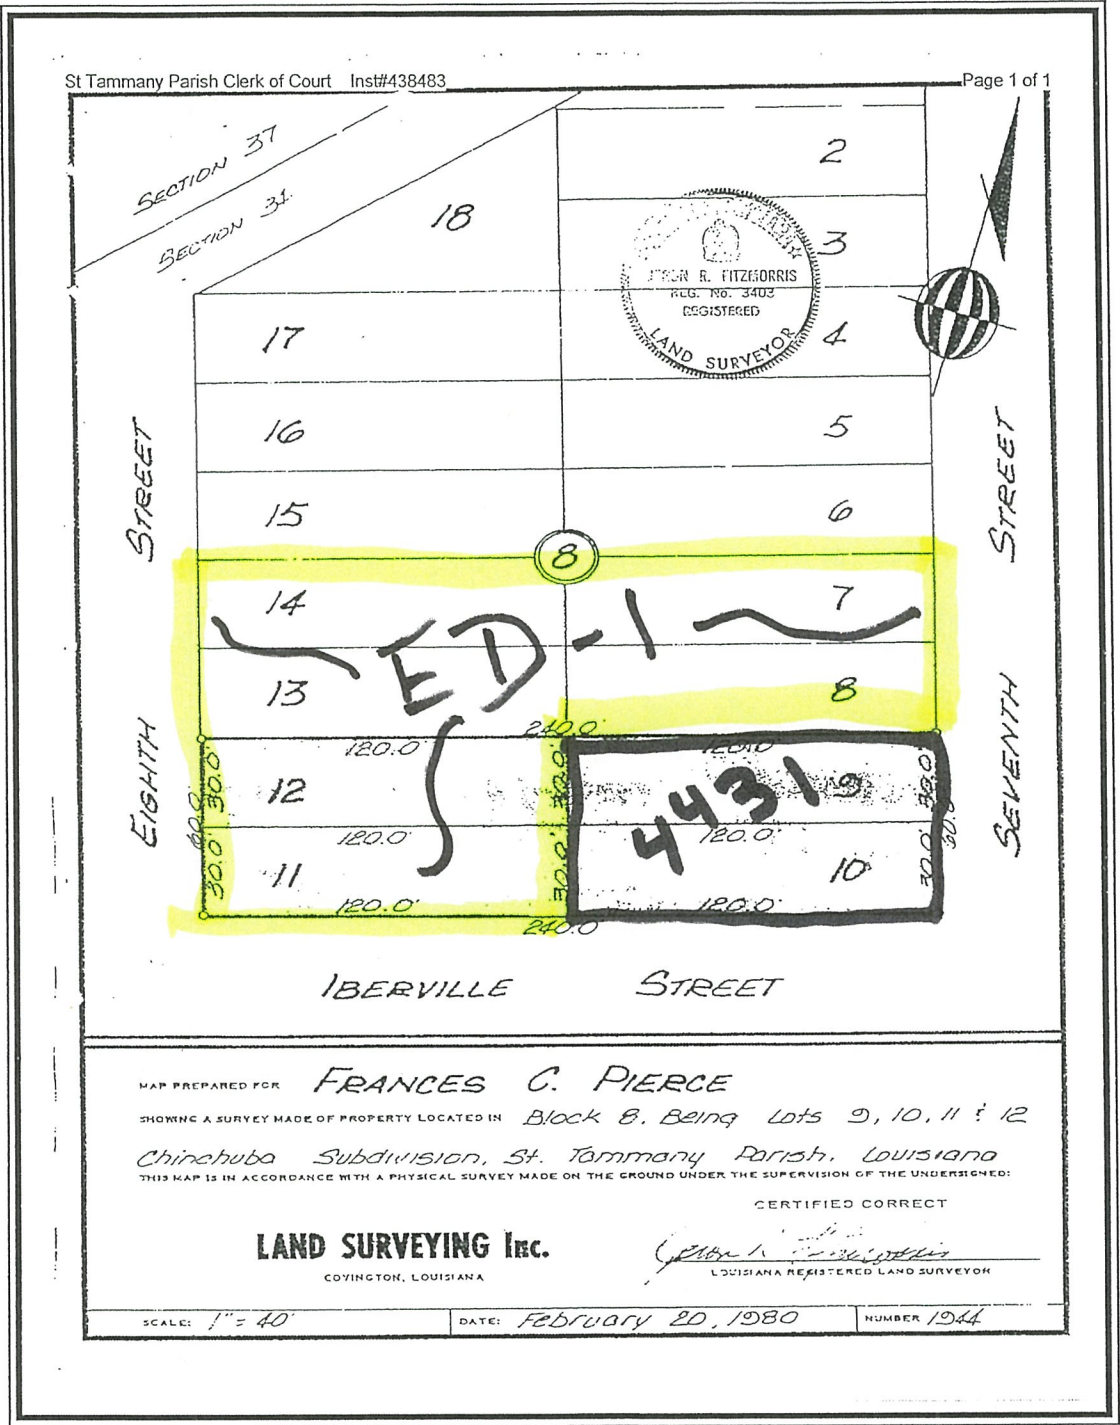 St Tammany Parish Clerk of Court Inst#438483 Page 1 of 1
SECTION 37
SECTION 31
18
2
3
REG. No. 3403
REGISTERED
LAND SURVEYOR
R. FITZMORRIS
17
4
16
5
15
6
STREET
STREET
8
14
7
ED-1
13
8
240.0'
120.0'
120.0'
EIGHTH
SEVENTH
12
9
4431
60.0
30.0'
30.0'
30.0'
60.0
120.0'
120.0'
11
10
30.0'
30.0'
30.0'
120.0'
120.0'
240.0
IBERVILLE STREET
MAP PREPARED FOR FRANCES C. PIERCE
SHOWING A SURVEY MADE OF PROPERTY LOCATED IN Block 8, Being Lots 9, 10, 11 & 12
Chinchuba Subdivision, St. Tammany Parish, Louisiana
THIS MAP IS IN ACCORDANCE WITH A PHYSICAL SURVEY MADE ON THE GROUND UNDER THE SUPERVISION OF THE UNDERSIGNED:
CERTIFIED CORRECT
LAND SURVEYING Inc.
COVINGTON, LOUISIANA
LOUISIANA REGISTERED LAND SURVEYOR
SCALE: 1" = 40' DATE: February 20, 1980 NUMBER 1944